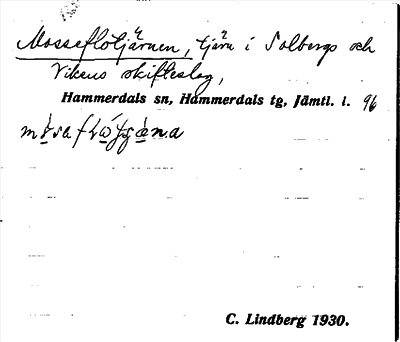 Mosseflötjärnen, tjärn i Solbergs och
Vikens skifteslag,
Hammerdals sn, Hammerdals tg, Jämtl. l. 96
C. Lindberg 1930.